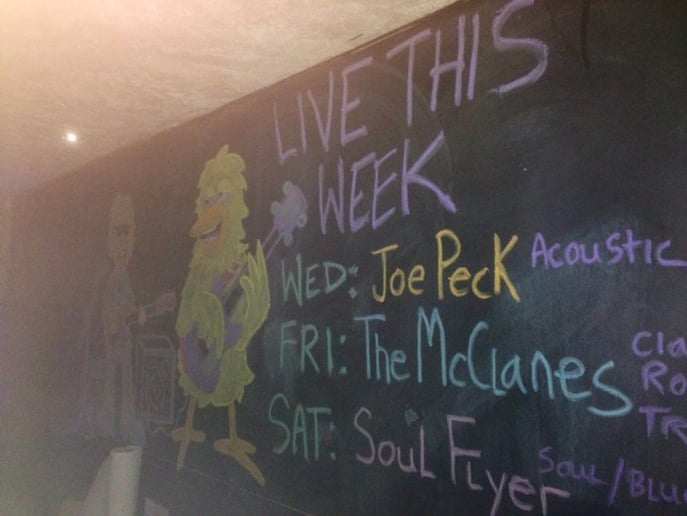 LIVE THIS
WEEK
WED: Joe Peck Acoustic
FRI: The McClanes
SAT: Soul Flyer Soul/